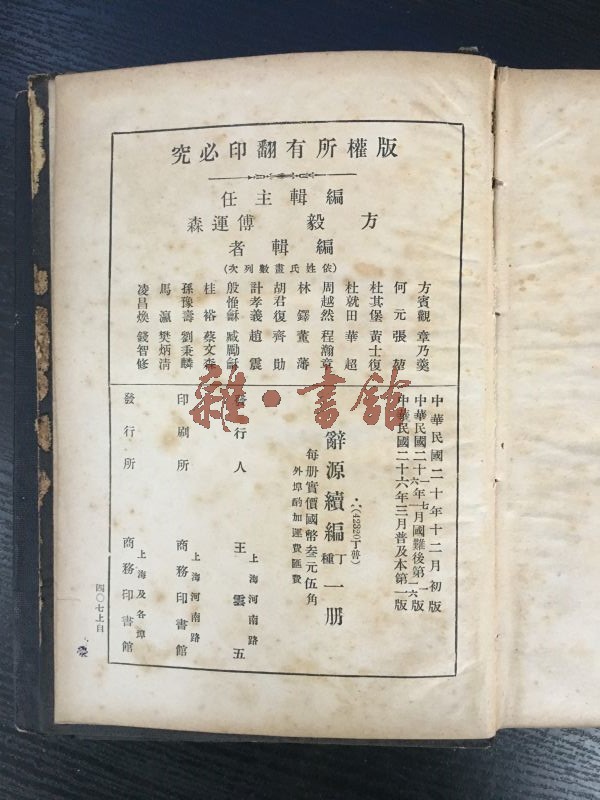 版權所有翻印必究
編輯主任
方毅 傅運森
編輯者
(依姓氏畫數列次)
方賓觀 章乃羹
何元 張堃
杜其堡 黃士復
杜就田 華超
周越然 程瀚章
林鐸 董蕃
胡君復 齊勛
計孝義 趙震
殷惟龢 臧勵龢
桂裕 蔡文森
孫豫壽 劉秉麟
馬瀛 樊炳清
凌昌煥 錢智修
中華民國二十年十二月初版
中華民國二十一年七月國難後第一版
中華民國二十六年三月普及本第一版
(42320丁普)
辭源續編 丁種 一册
每册實價國幣叁元伍角
外埠酌加運費匯費
發行人 上海河南路 王雲五
印刷所 上海河南路 商務印書館
發行所 上海及各埠 商務印書館
四〇七上自
雜·書館